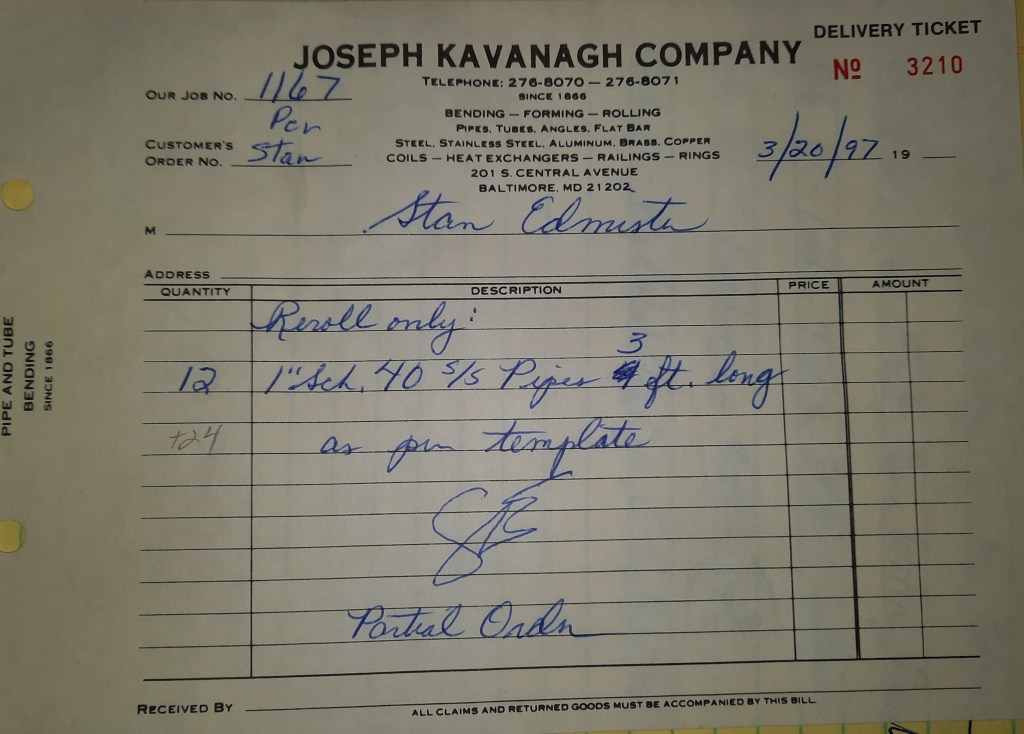 DELIVERY TICKET
JOSEPH KAVANAGH COMPANY
Nº 3210
TELEPHONE: 276-8070 — 276-8071
SINCE 1866
OUR JOB NO. 1167
BENDING — FORMING — ROLLING
PIPES, TUBES, ANGLES, FLAT BAR
Per
CUSTOMER'S
ORDER NO. Stan
STEEL, STAINLESS STEEL, ALUMINUM, BRASS, COPPER
COILS — HEAT EXCHANGERS — RAILINGS — RINGS
3/20/97 19
201 S. CENTRAL AVENUE
BALTIMORE, MD 21202
M Stan Edmister
ADDRESS
QUANTITY DESCRIPTION PRICE AMOUNT
Reroll only:
12 1" Sch. 40 s/s Pipes 3 ft. long
+24 as per template
Partial Order
RECEIVED BY
ALL CLAIMS AND RETURNED GOODS MUST BE ACCOMPANIED BY THIS BILL
PIPE AND TUBE
BENDING
SINCE 1866